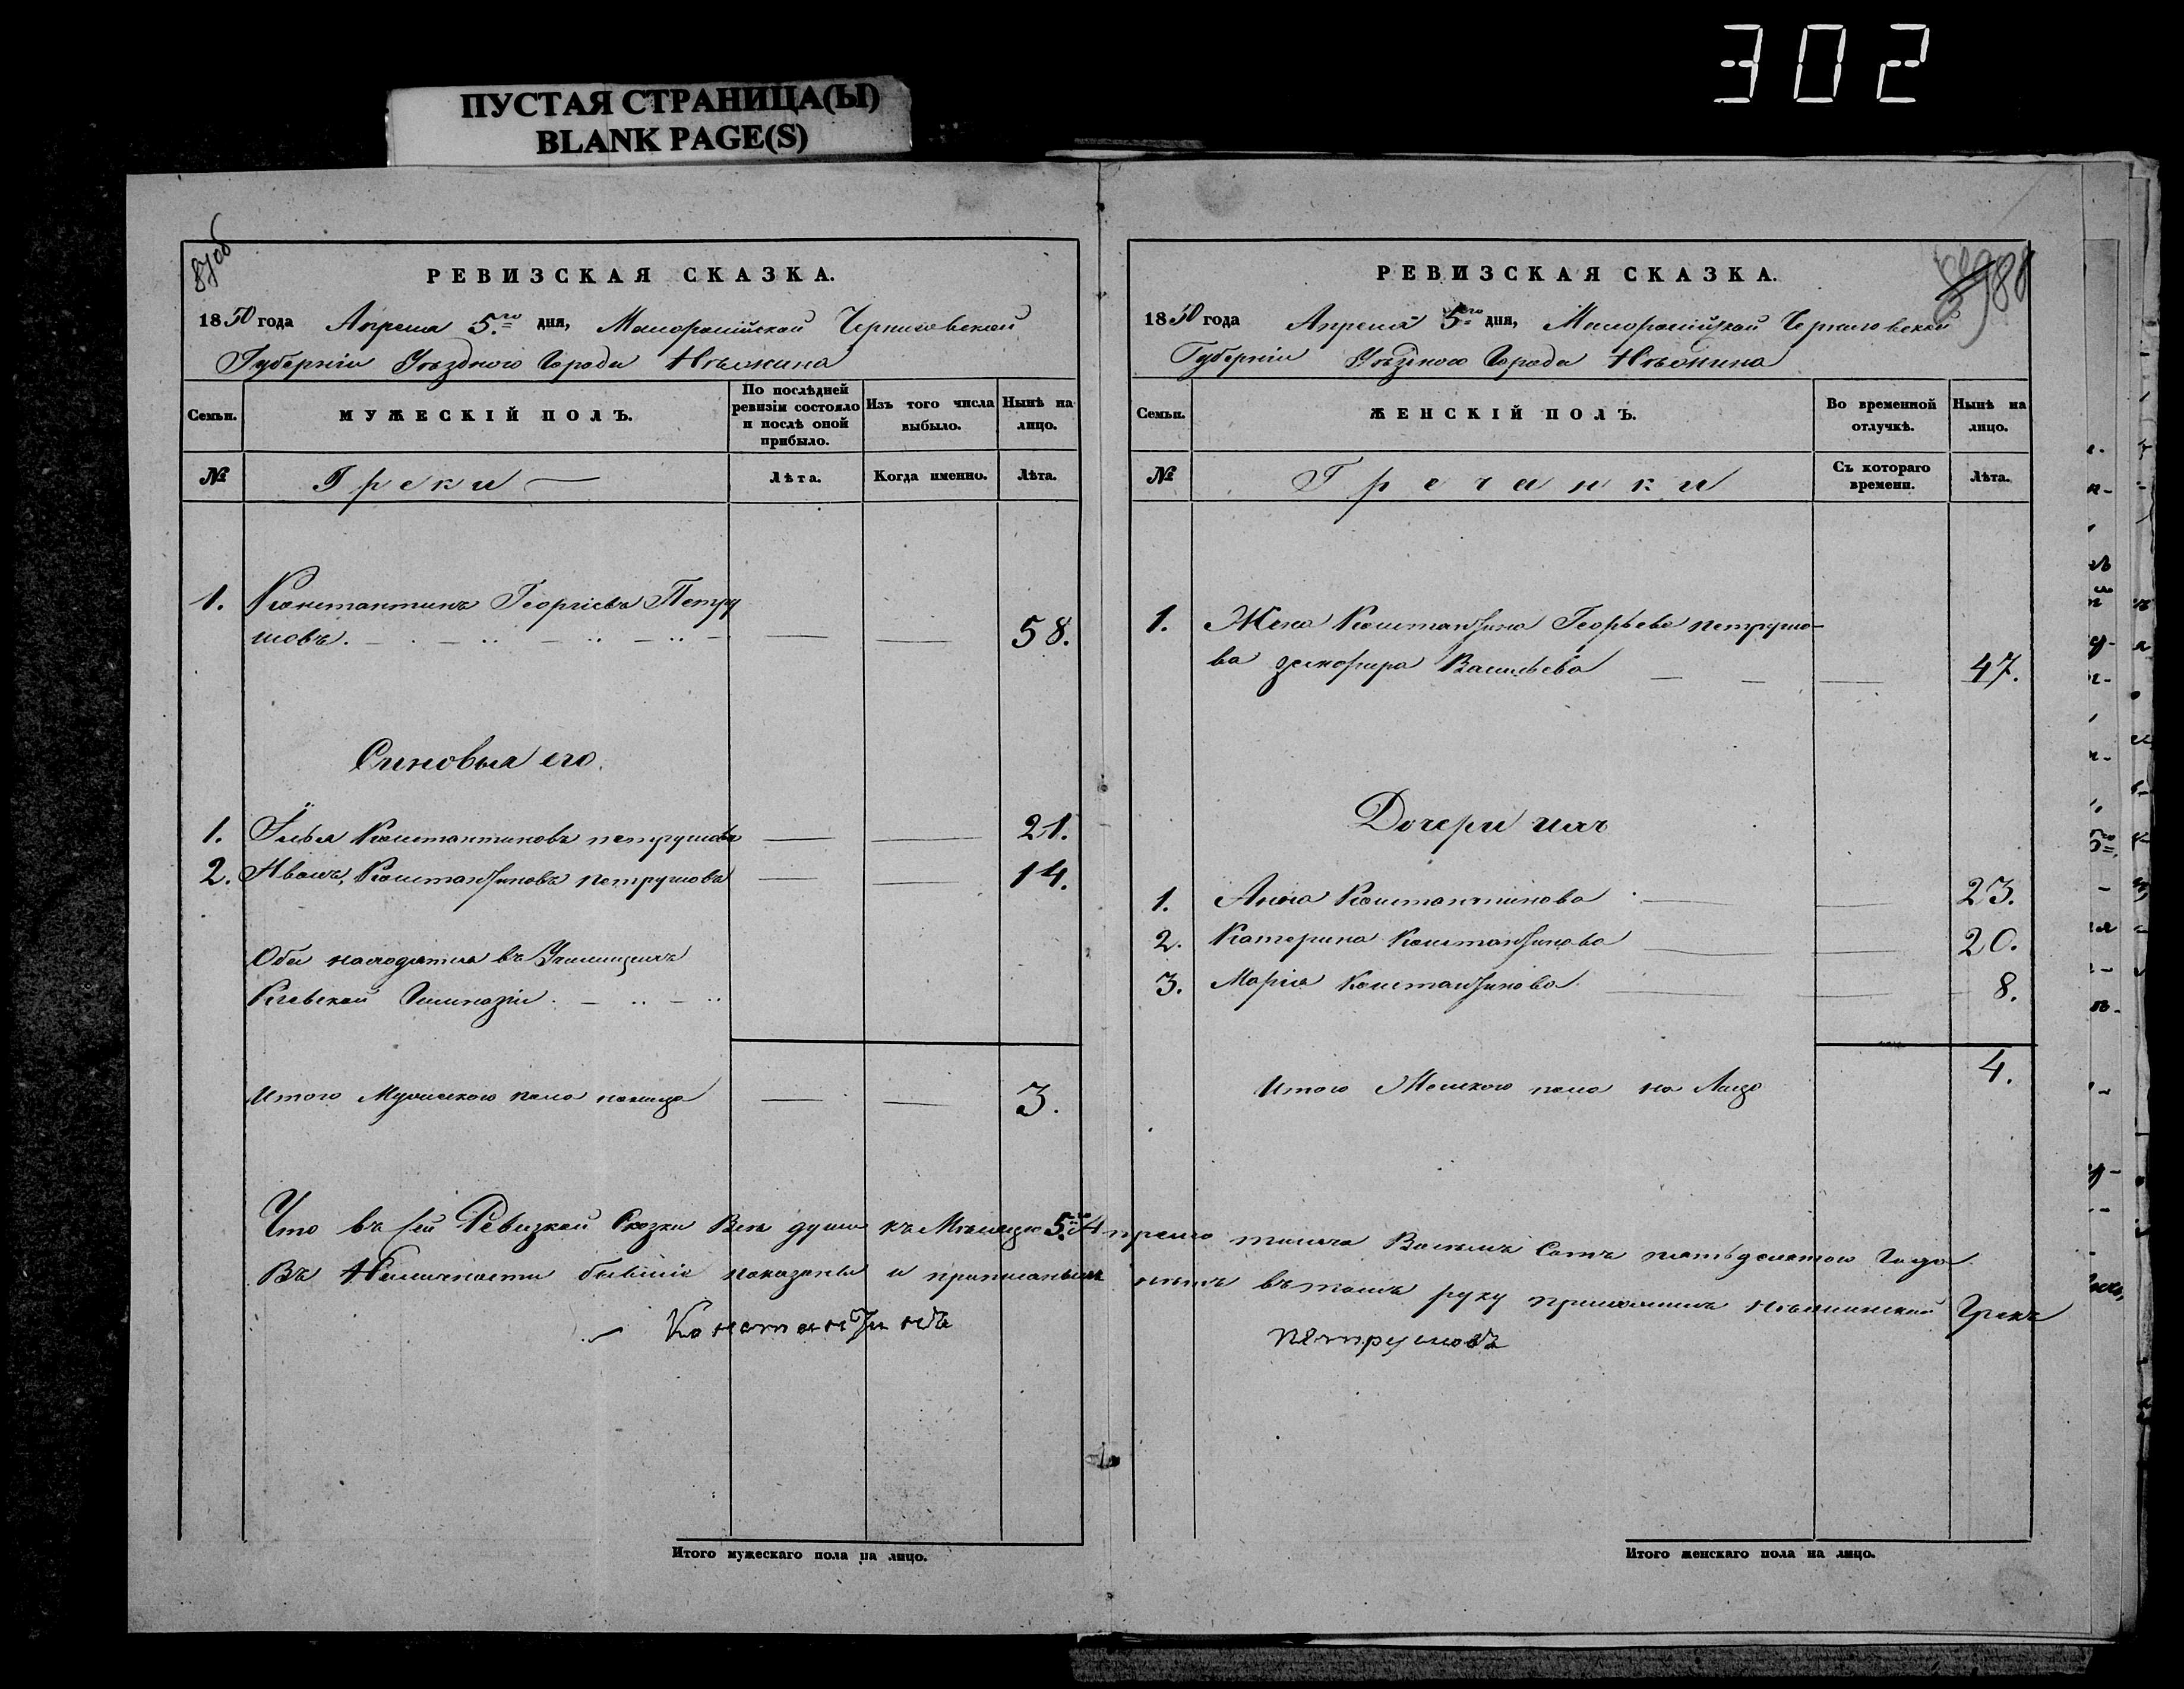 302
ПУСТАЯ СТРАНИЦА(Ы)
BLANK PAGE(S)
87об
РЕВИЗСКАЯ СКАЗКА.
1850 года Апреля 5.го дня, Малоросійской Черниговской
Губерніи Уѣздного Города Нѣжина
Семьи.
МУЖЕСКІЙ ПОЛЪ.
По послѣдней ревизіи состояло и послѣ оной прибыло.
Изъ того числа выбыло.
Нынѣ на лицо.
№
Греки
Лѣта.
Когда именно.
Лѣта.
1. Константинъ Георгіевъ Петру
шовъ. 58.
Синовья его.
1. Илья Константиновъ петрушовъ 21.
2. Иванъ, Константиновъ петрушовъ 14.
Оба находятся въ Училищахъ
Киевской Гимназіи.
Итого Мужеского пола налицо 3.
88
РЕВИЗСКАЯ СКАЗКА.
1850 года Апреля 5го дня, Малоросійской Черниговской
Губерніи Уѣздного Города Нѣжина
Семьи.
ЖЕНСКІЙ ПОЛЪ.
Во временной отлучкѣ.
Нынѣ на лицо.
№
Гречанки
Съ котораго времени.
Лѣта.
1. Жена Константина Георьева петрушо-
ва земфира Васильева 47.
Дочери ихъ
1. Анна Константинова 23.
2. Катерина Константинова 20.
3. Марія Константинова 8.
4.
Итого Женского пола на Лицо
Что въ сей Ревизкой Сказки Всѣ души къ Мѣсяцю 5го Апреля тисяча Восемъ Сотъ пятьдесятого Года
Въ Наличности бывшіе показаны и прописныхъ нетъ въ томъ руку приложилъ нѣжинский Грекъ
Константинъ петрушовъ
Итого мужескаго пола на лицо.
Итого женскаго пола на лицо.